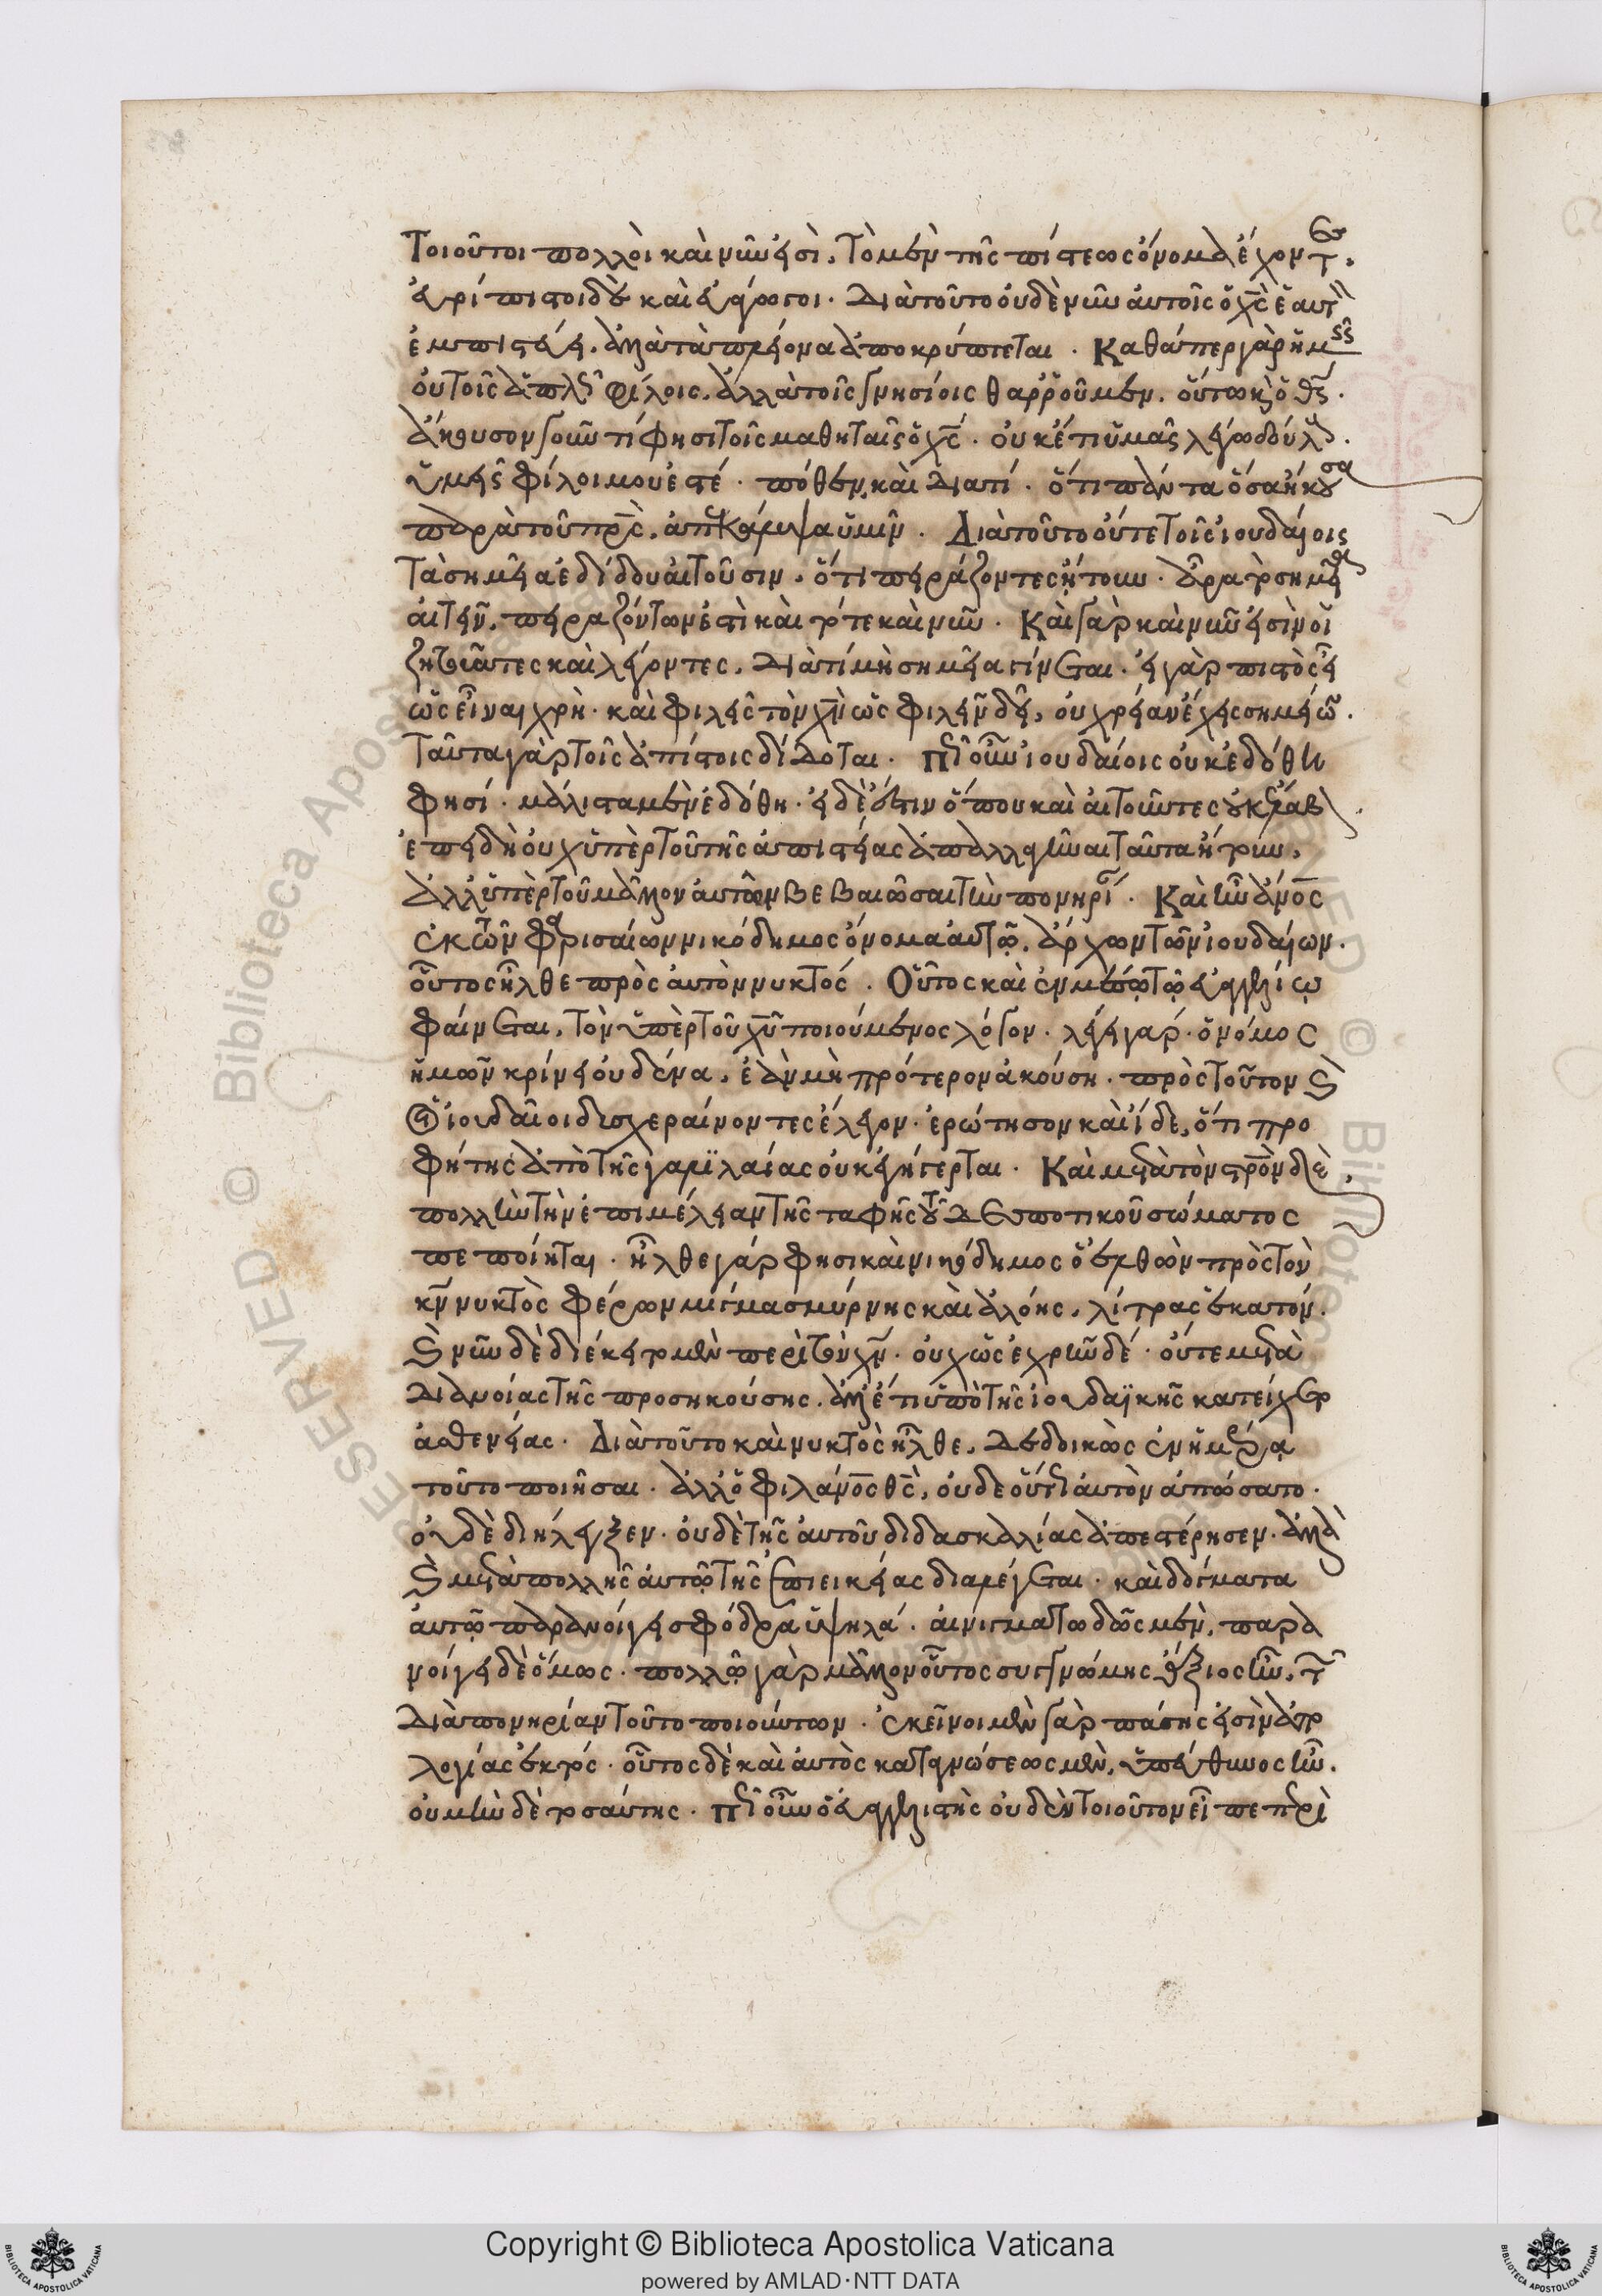 Τοιοῦτοι πολλοὶ καὶ νῦν εἰσὶ, τὸ μὲν τῆς πίστεως ὄνομα ἔχοντες,
εὐρίπιστοι δὲ καὶ εὐάγωγοι. Διὰ τοῦτο οὐδὲ νῦν αὐτοῖς ὁ χς ἑαυτὸν
ἐμπιστεύει, ἀλλὰ τὰ πλείονα ἀποκρύπτεται. Καθάπερ γὰρ ἡμεῖς
οὐ τοῖς ἁπλῶς φίλοις, ἀλλὰ τοῖς γνησίοις θαρροῦμεν, οὕτω καὶ ὁ θς.
ἄκουσον γοῦν τί φησι τοῖς μαθηταῖς ὁ χς. οὐκέτι ὑμᾶς λέγω δούλους.
ὑμεῖς φίλοι μου ἐστέ. πόθεν, καὶ διατί. ὅτι πάντα ὅσα ἤκουσα
παρὰ τοῦ πρς, ἀνήγγειλα ὑμῖν. Διὰ τοῦτο οὔτε τοῖς ἰουδαίοις
τὰ σημεῖα ἐδίδου αἰτοῦσιν, ὅτι πειράζοντες ᾔτουν. ἆρα τὸ σημεῖα
αἰτεῖν, πειραζόντων ἐστὶ καὶ τότε καὶ νῦν. Καὶ γὰρ καὶ νῦν εἰσὶν οἱ
ζητοῦντες καὶ λέγοντες, διατί μὴ σημεῖα γίνεται. εἰ γὰρ πιστὸς εἶ
ὡς εἶναι χρὴ, καὶ φιλεῖς τὸν χν ὡς φιλεῖν δεῖ, οὐ χρείαν ἔχεις σημείων.
ταῦτα γὰρ τοῖς ἀπίστοις δίδοται. πῶς οὖν ἰουδαίοις οὐκ ἐδόθη
φησί. μάλιστα μὲν ἐδόθη. εἰ δὲ ἔστιν ὅπου καὶ αἰτοῦντες οὐκ ἔλαβον,
ἐπειδὴ οὐχ ὑπὲρ τοῦ τῆς ἀπιστίας ἀπαλλαγῆναι ταῦτα ᾔτουν,
ἀλλ' ὑπὲρ τοῦ μᾶλλον αὐτῶν βεβαιῶσαι τὴν πονηρίαν. Καὶ ἦν ἄνος
ἐκ τῶν φαρισαίων νικόδημος ὄνομα αὐτῷ, ἄρχων τῶν ἰουδαίων.
οὗτος ἦλθε πρὸς αὐτὸν νυκτός. Οὗτος καὶ ἐν μέσῳ τῷ εὐαγγελίῳ
φαίνεται, τὸν ὑπὲρ τοῦ χυ ποιούμενος λόγον. λέγει γάρ. ὁ νόμος
ἡμῶν κρίνει οὐδένα, ἐὰν μὴ πρότερον ἀκούσῃ. πρὸς τοῦτον καὶ
οἱ ἰουδαῖοι δυσχεραίνοντες ἔλεγον. ἐρώτησον καὶ ἴδε, ὅτι προ
φήτης ἀπὸ τῆς γαλιλαίας οὐκ ἐγήγερται. Καὶ μετὰ τὸν στρον δὲ,
πολλὴν τὴν ἐπιμέλειαν τῆς ταφῆς τοῦ δεσποτικοῦ σώματος
πεποίηται. ἦλθε γάρ φησι καὶ νικόδημος ὁ ἐλθὼν πρὸς τὸν
κν νυκτὸς φέρων μίγμα σμύρνης καὶ ἀλόης, λίτρας ἑκατόν.
καὶ νῦν δὲ διέκειτο μὲν περὶ τὸν χν. οὐχ ὡς ἐχρῆν δέ. οὔτε μετὰ
διανοίας τῆς προσηκούσης, ἀλλ' ἔτι ὑπὸ τῆς ἰουδαϊκῆς κατείχετο
ἀσθενείας. Διὰ τοῦτο καὶ νυκτὸς ἦλθε, δεδοικὼς ἐν ἡμέρᾳ
τοῦτο ποιῆσαι. ἀλλ' ὁ φιλάνος θς, οὐδὲ οὕτως αὐτὸν ἀπώσατο.
οὐδὲ διήλεγξεν. οὐδὲ τῆς αὐτοῦ διδασκαλίας ἀπεστέρησεν. ἀλλὰ
καὶ μετὰ πολλῆς αὐτῷ τῆς ἐπιεικείας διαλέγεται. καὶ δόγματα
αὐτῷ παρανοίγει σφόδρα ὑψηλά. αἰνιγματωδῶς μὲν, παρα
νοίγει δὲ ὅμως. πολλῷ γὰρ μᾶλλον οὗτος συγγνώμης ἄξιος ἦν, τῶν
διὰ πονηρίαν τοῦτο ποιούντων. ἐκεῖνοι μὲν γὰρ πάσης εἰσὶν ἀπο
λογίας ἐκτός. οὗτος δὲ καὶ αὐτὸς καταγνώσεως μὲν, ὑπεύθυνος ἦν.
οὐ μὴν δὲ τοσαύτης. πῶς οὖν ὁ εὐαγγελιστὴς οὐδὲν τοιοῦτον εἶπε περὶ
Copyright © Biblioteca Apostolica Vaticana
powered by AMLAD·NTT DATA